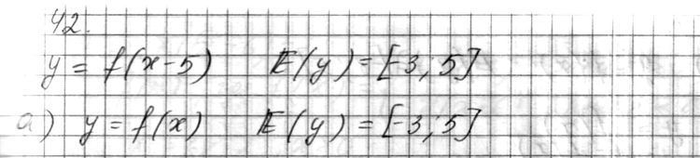 42.
y = f(x-5) E(y) = [-3; 5]
a) y = f(x) E(y) = [-3; 5]